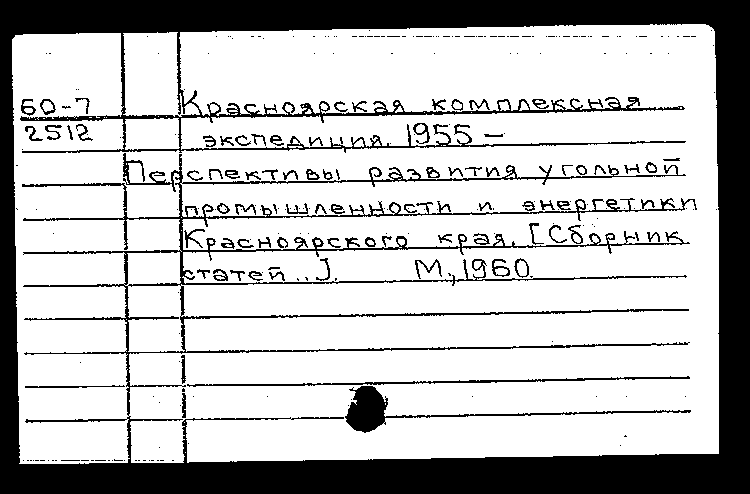 60-7
2512
Красноярская комплексная
экспедиция. 1955 –
Перспективы развития угольной
промышленности и энергетики
Красноярского края. [Сборник
статей ..]. М., 1960